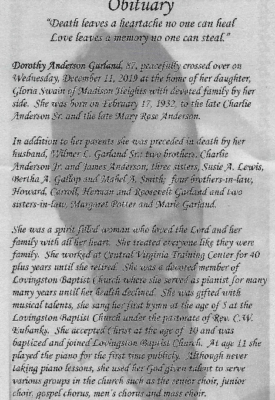 Obituary
"Death leaves a heartache no one can heal
Love leaves a memory no one can steal."
Dorothy Anderson Garland, 87, peacefully crossed over on
Wednesday, December 11, 2019 at the home of her daughter,
Gloria Swain of Madison Heights with devoted family by her
side. She was born on February 17, 1932, to the late Charlie
Anderson Sr. and the late Mary Rose Anderson.
In addition to her parents she was preceded in death by her
husband, Wilmer C. Garland Sr.; two brothers, Charlie
Anderson Jr. and James Anderson; three sisters, Susie A. Lewis,
Bertha A. Gallop and Mabel A. Smith; four brothers-in-law,
Howard, Carroll, Herman and Roosevelt Garland and two
sisters-in-law, Margaret Potter and Marie Garland.
She was a spirit filled woman who loved the Lord and her
family with all her heart. She treated everyone like they were
family. She worked at Central Virginia Training Center for 40
plus years until she retired. She was a devoted member of
Lovingston Baptist Church where she served as pianist for many
many years until her health declined. She was gifted with
musical talents, she sang her first hymn at the age of 5 at the
Lovingston Baptist Church under the pastorate of Rev. C.W.
Eubanks. She accepted Christ at the age of 10 and was
baptized and joined Lovingston Baptist Church. At age 11 she
played the piano for the first time publicly. Although never
taking piano lessons, she used her God given talent to serve
various groups in the church such as the senior choir, junior
choir, gospel chorus, men's chorus and mass choir.